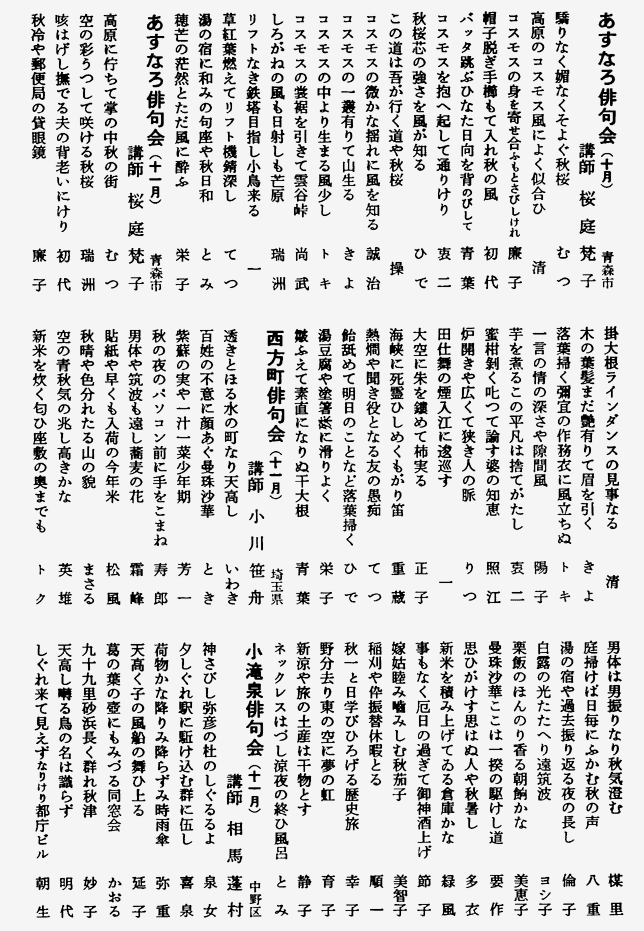 あすなろ俳句会（十月）
青森市
講師 桜庭 梵子
驕りなく媚なくそよぐ秋桜 むつ
高原のコスモス風によく似合ひ 清
コスモスの身を寄せ合ふもとさびしけれ 廉子
帽子脱ぎ手櫛もて入れ秋の風 初代
バッタ跳ぶひなた日向を背のびして 青葉
コスモスを抱へ起して通りけり 衷二
秋桜芯の強さを風が知る ひで
この道は吾が行く道や秋桜 操
コスモスの微かな揺れに風を知る 誠治
コスモスの一叢有りて山生る きよ
コスモスの中より生まる風少し トキ
コスモスの裳裾を引きて雲谷峠 尚武
しろがねの風も日射しも芒原 瑞洲
リフトなき鉄塔目指し小鳥来る 一
草紅葉燃えてリフト機錆深し てつ
湯の宿に和みの句座や秋日和 とみ
穂芒の茫然とただ風に酔ふ 栄子
あすなろ俳句会（十一月）
青森市
講師 桜庭 梵子
高原に佇ちて掌の中秋の街 むつ
空の彩うつして咲ける秋桜 瑞洲
咳はげし撫でる夫の背老いにけり 初代
秋冷や郵便局の貸眼鏡 廉子
掛大根ラインダンスの見事なる 清
木の葉髪まだ艶有りて眉を引く きよ
落葉掃く禰宜の作務衣に風立ちぬ トキ
一言の情の深さや隙間風 陽子
芋を煮るこの平凡は捨てがたし 衷二
蜜柑剝く叱つて諭す婆の知恵 照江
炉開きや広くて狭き人の脈 りつ
田仕舞の煙入江に逡巡す 一
大空に朱を鏤めて柿実る 正子
海峡に死霊ひしめくもがり笛 重蔵
熱燗や聞き役となる友の愚痴 てつ
飴舐めて明日のことなど落葉掃く ひで
湯豆腐や塗箸妙に滑りよく 栄子
皺ふえて素直になりぬ干大根 青葉
西方町俳句会（十一月）
埼玉県
講師 小川 笹舟
透きとほる水の町なり天高し いわき
百姓の不意に顔あぐ曼珠沙華 とき
紫蘇の実や一汁一菜少年期 芳一
秋の夜のパソコン前に手をこまね 寿郎
男体や筑波も遠し蕎麦の花 霜峰
貼紙や早くも入荷の今年米 松風
秋晴や色分れたる山の貌 まさる
空の青秋気の兆し高きかな 英雄
新米を炊く匂ひ座敷の奥までも トク
男体は男振りなり秋気澄む 槿里
庭掃けば日毎にふかむ秋の声 八重
湯の宿や過去振り返る夜の長し 倫子
白露の光たたへり遠筑波 ヨシ子
栗飯のほんのり香る朝餉かな 美恵子
曼珠沙華ここは一揆の駆けし道 要作
思ひがけず思はぬ人や秋暑し 多衣
新米を積み上げてゐる倉庫かな 緑風
事もなく厄日の過ぎて御神酒上げ 節子
嫁姑睦み嚙みしむ秋茄子 美智子
稲刈や伜振替休暇とる 順一
秋一と日学びひろげる歴史旅 幸子
野分去り東の空に夢の虹 育子
新涼や旅の土産は干物とす 静子
ネックレスはづし涼夜の終ひ風呂 とみ
小滝泉俳句会（十一月）
中野区
講師 相馬 蓬村
神さびし弥彦の杜のしぐるるよ 泉女
夕しぐれ駅に駈け込む群に伍し 喜泉
荷物かな降りみ降らずみ時雨傘 弥重
天高く子の風船の舞ひ上る 延子
葛の葉の壺にもみづる同窓会 かおる
九十九里砂浜長く群れ秋津 妙子
天高し囀る鳥の名は識らず 明代
しぐれ来て見えずなりけり都庁ビル 朝生